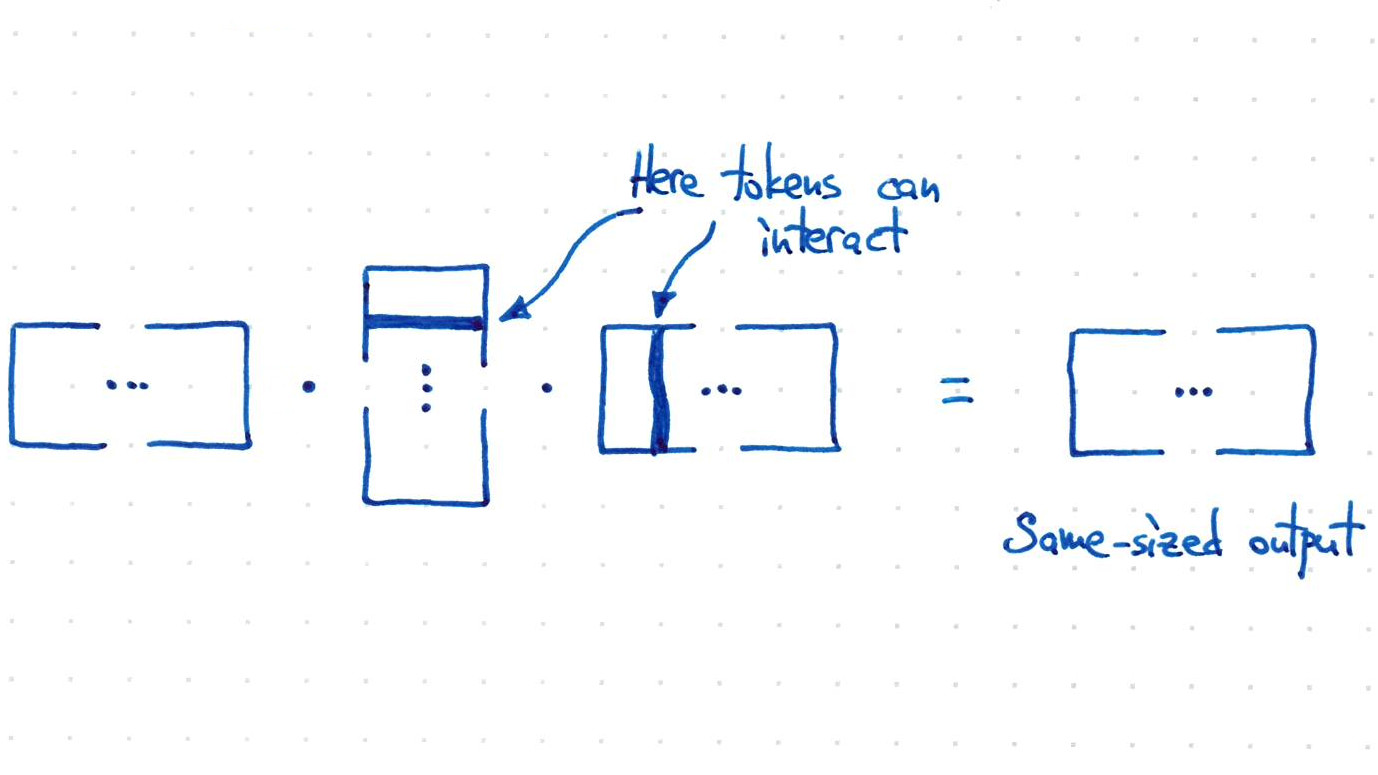 Here tokens can
interact
=
Same-sized output